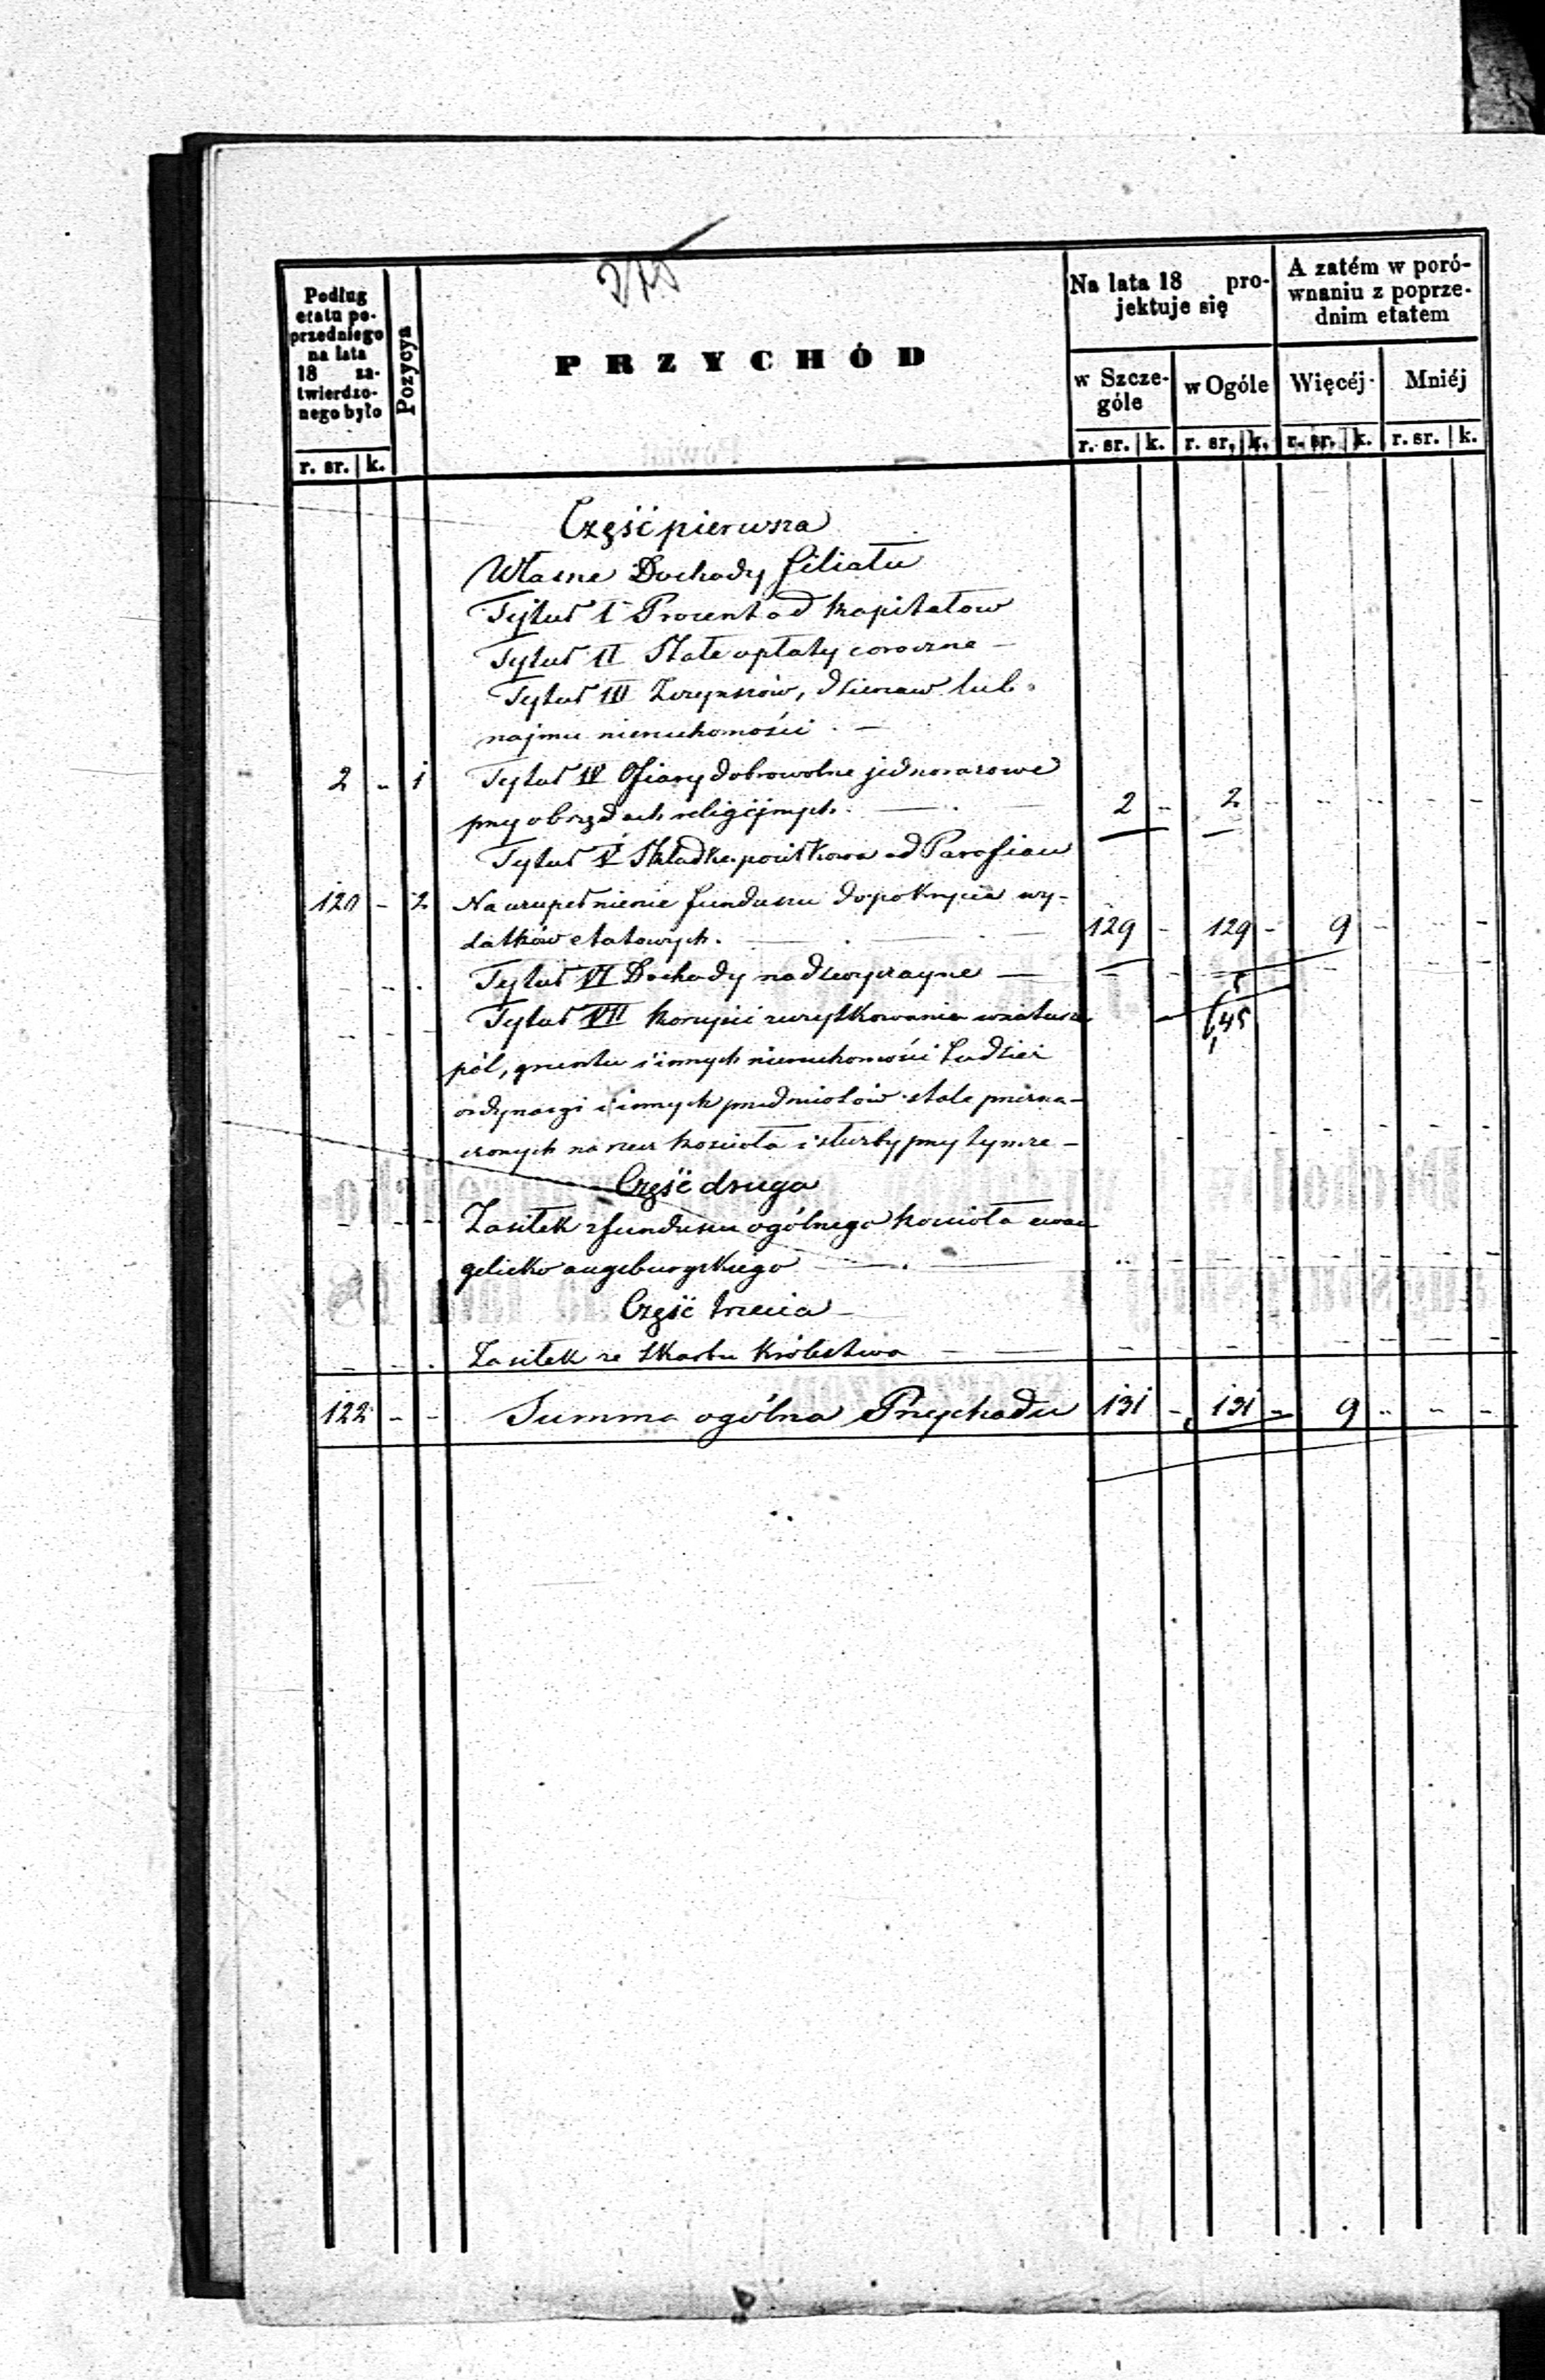 Podług
etatu po-
przedniego
na lata
18 za-
twierdzo-
nego było
r. sr. k.
Pozycya
PRZYCHÓD
Na lata 18 pro-
jektuje się
w Szcze-
góle
r. sr. k.
w Ogóle
r. sr. k.
A zatém w poró-
wnaniu z poprze-
dnim etatem
Więcéj
r. sr. k.
Mniéj
r. sr. k.
Część pierwsza
Własne Dochody filiału
Tytuł I Procent od kapitałow
Tytuł II Stałe opłaty coroczne —
Tytuł III Z czynszów, dzierzaw lub
najmu nieruchomości —
2 - 1 Tytuł IV Ofiary dobrowolne jednorazowe
przy obrzędach religijnych. — 2 - 2 - - - - -
Tytuł V Składka posiłkowa od Parafian
120 - 2 Na uzupełnienie funduszu do pokrycia wy-
datków etatowych. — 129 - 129 - 9 - - -
Tytuł VI Dochody nadzwyczayne —
Tytuł VII Korzyści z użytkowania
45
pól, gruntu i innych nieruchomości tudzież
ordynaryi i innych przedmiotów stale przezna-
czonych na rzecz kościoła i służby przy tymże —
Część druga
Zasiłek z funduszu ogólnego kościoła ewan
gelicko augsburgskiego —
Część trzecia —
Zasiłek ze Skarbu Królestwa —
122 - - Summa ogólna Przychodu 131 - 131 - 9 - - -